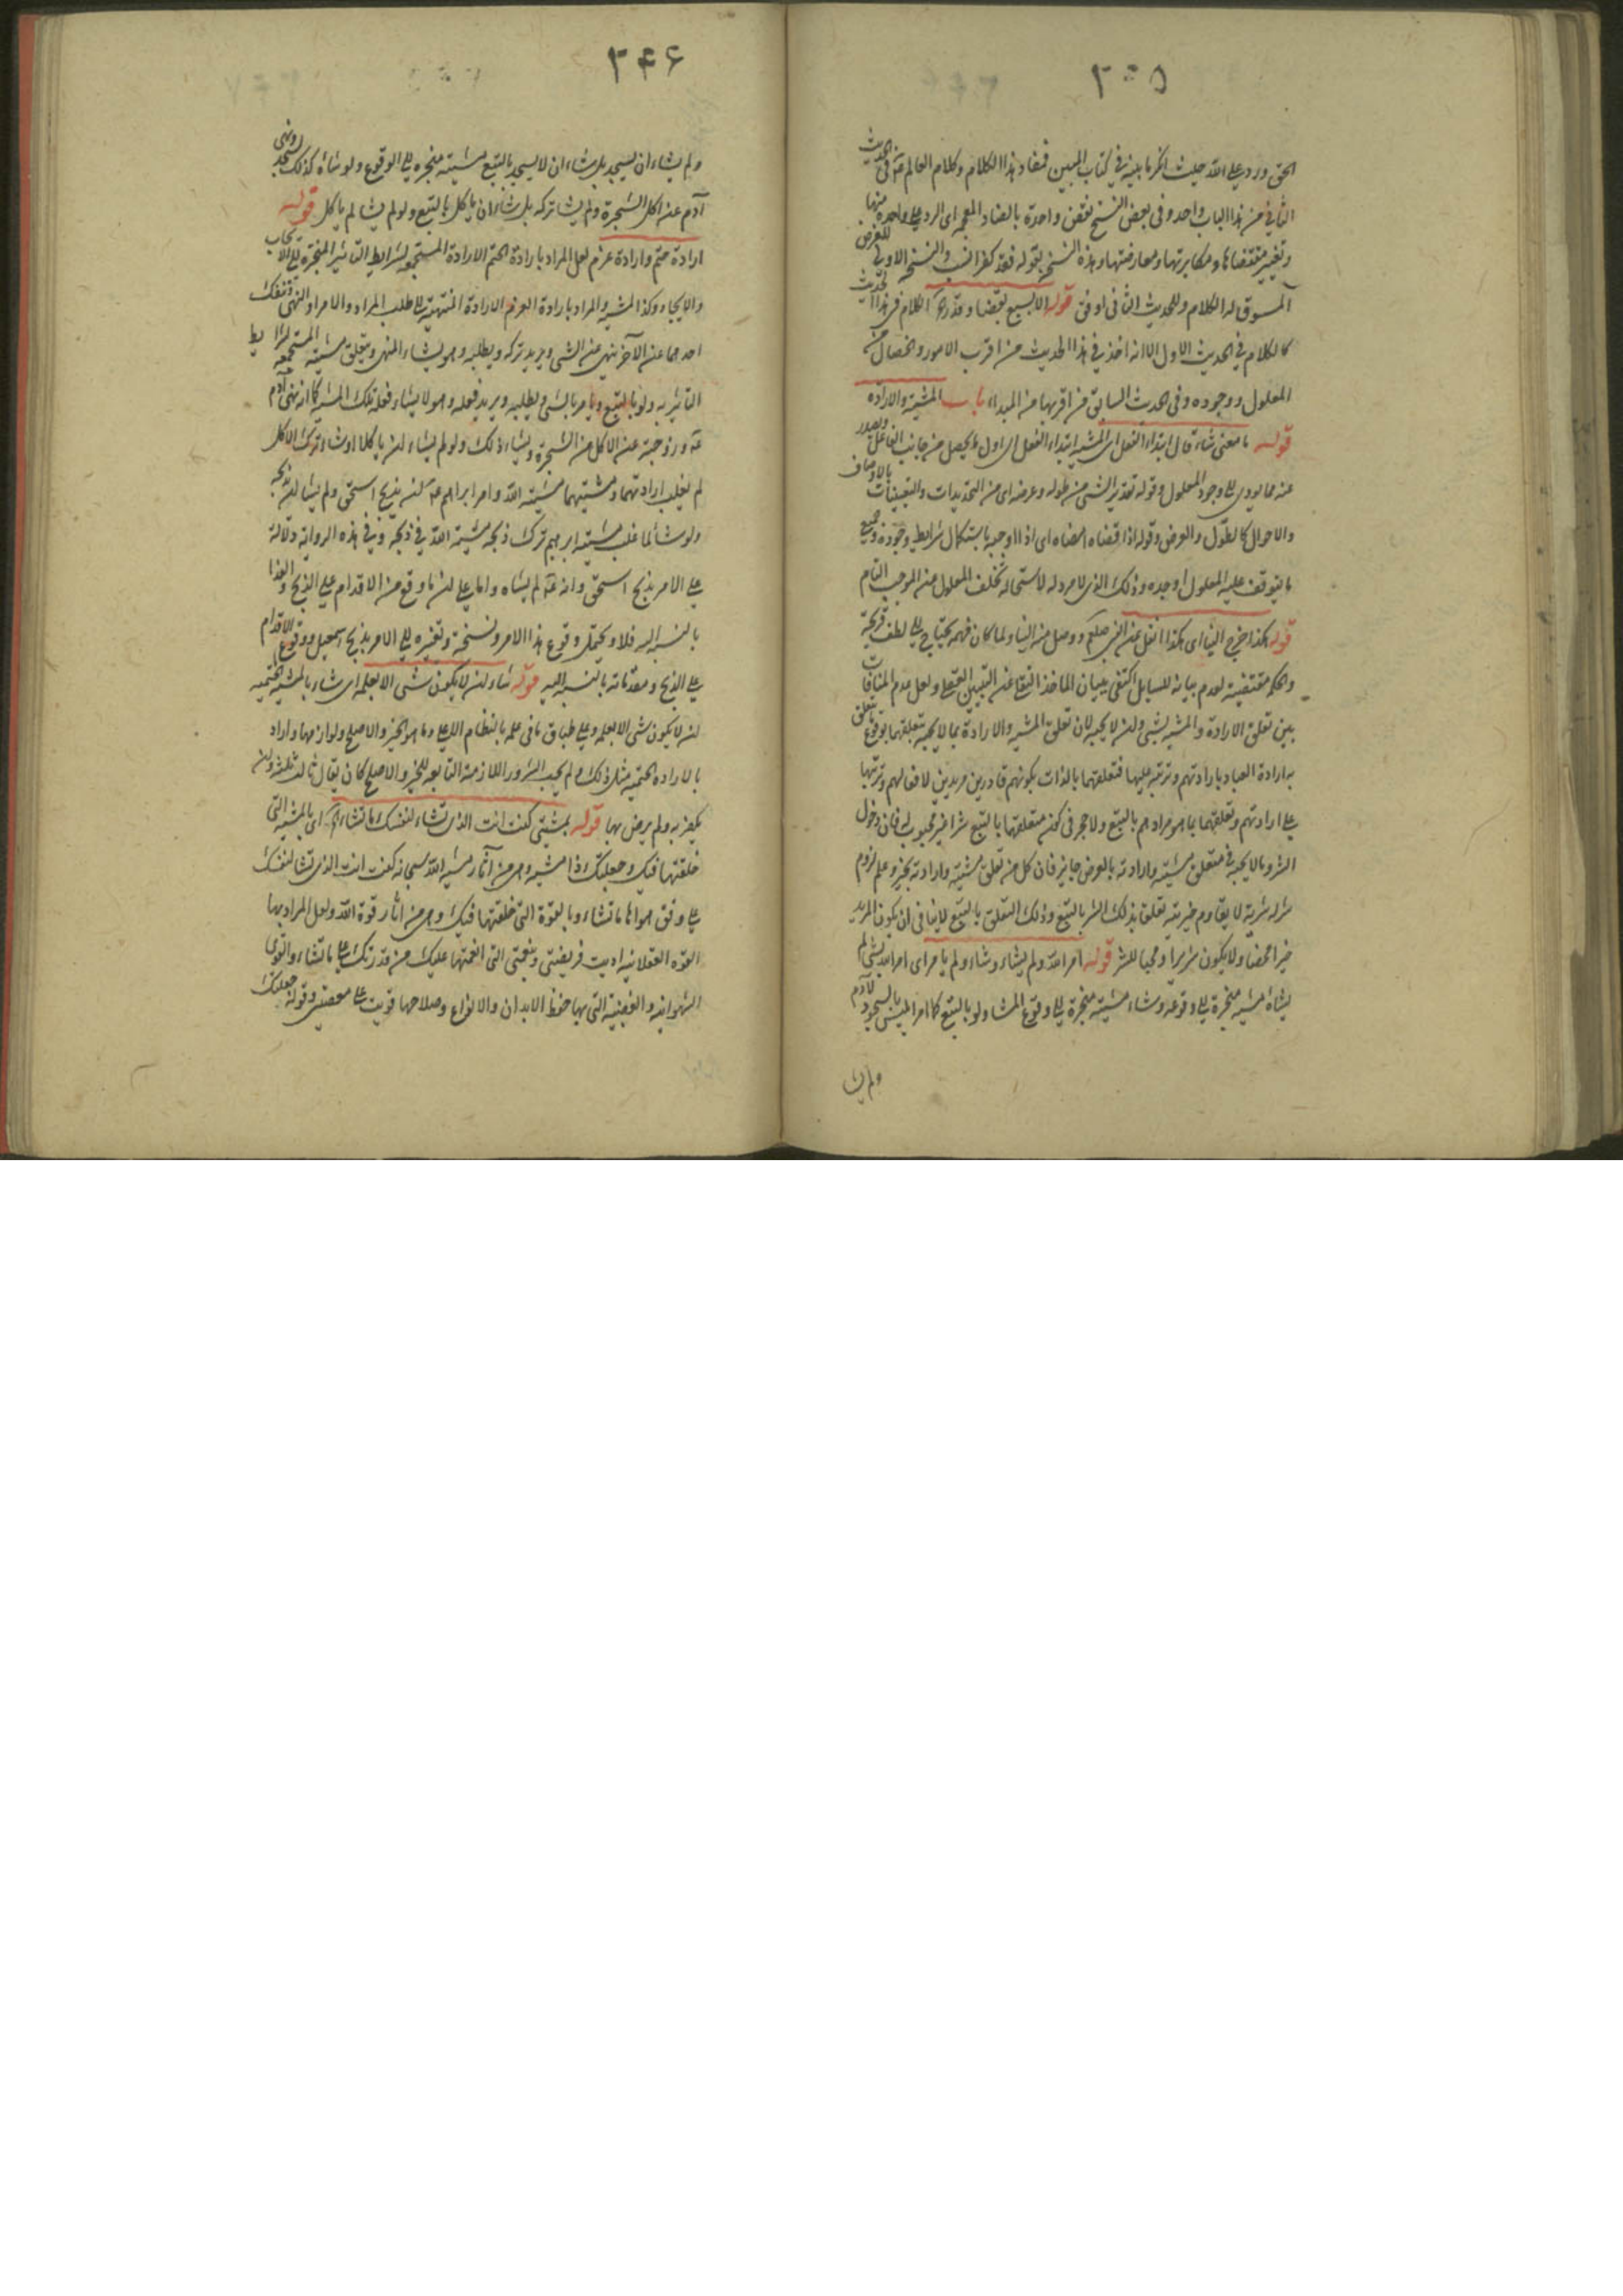 ٣٠٥
الحق ورد على الله حيث اخبر ما بينه في كتاب المبين فمفاد هذا الكلام وكلام العالم عه في الحديث
الثاني من هذا الباب واحد وفي بعض النسخ نقض واحدة بالضاد المعجمه اى الرد على واحده منها
وتغيير مقتضاها ومكابرتها ومعارضتها وهذه النسخ بقوله فقد كفر انسب والنسخه الاولى للغرض
المسوق له الكلام وللحديث الثاني اوفق قوله الا بسبع بقضاء وقدر اه الكلام في هذا الحديث
كالكلام في الحديث الاول الا انه اخذ في هذا الحديث من اقرب الامور والخصال من
المعلول ووجوده وفي الحديث السابق من اقربها من المبداء باب المشية والارادة
قوله ما معنى شاء قال ابتداء الفعل اى المشية ابتداء الفعل اى اول ما يحصل من جانب الفاعل ويصدر
عنه مما يودى الى وجود المعلول وقوله تقدير الشى من طوله وعرضه اى من التحديدات والتعيينات بالاوصاف
والاحوال كالطول والعرض وقوله اذا قضاه امضاه اى اذا اوجبه باستكمال شرايط وجوده وجميع
ما يتوقف عليه المعلول اوجده وذلك الذى لا مرد له لاستحالة تخلف المعلول عن الموجب التام
قوله هكذا خرج الينا اى هكذا نقل عن النبى صلعم ووصل منه الينا ولما كان فهمه يحتاج الى لطف قريحة
والحكمة مقتضية لعدم بيانه للسايل اكتفى ببيان الماخذ النقلى عن التبيين العقلى ولعل عدم المنافات
بين تعلق الارادة والمشية بشى وان لا يحبه لان تعلق المشية والارادة بما لا يحبه بتعلقهما بوقوع ما يتعلق
به ارادة العباد بارادتهم وترتبه عليها فتعلقهما بالذات بكونهم قادرين مريدين لافعالهم وترتبها
على ارادتهم وتعلقهما بما هو مرادهم بالتبع ولا حجر في كون متعلقهما بالتبع شرا غير محبوب له فان دخول
الشر وما لا يحبه في متعلق مشيته وارادته بالعرض جايز فان كل من تعلق مشيته وارادته بخير وعلم لزوم
شر له شرية لا يقاوم خيريته تعلقا بذلك الشر بالتبع وذلك التعلق بالتبع لا ينافى ان يكون المريد
خيرا محضا ولا يكون شريرا ومحبا للشر قوله امر الله ولم يشاء وشاء ولم يامر اى امر الله بشى لم
يشاه مشية منجرة الى وقوعه وشاء مشية منجرة الى وقوع المشاء ولو بالتبع كما امر ابليس بالسجود لآدم
ولم يشا
٣٤٦
ولم يشاء ان يسجد بل شاء ان لا يسجد بالتبع مشية منجره الى الوقوع ولو شاء كذلك لسجد ونهى
آدم عن اكل الشجرة ولم يشا تركه بل شاء ان ياكل بالتبع ولو لم يشا لم ياكل قوله
ارادة حتم وارادة عزم لعل المراد بارادة الحتم الارادة المستجمعه لشرايط التاثير المنجرة الى الايجاب
والايجاد وكذا المشية والمراد بارادة العزم الارادة المنتهية الى طلب المراد والامر او النهى وتنفك
احدهما عن الآخر ينهى عن الشى ويريد تركه ويطلبه وهو يشاء المنهى ويتعلق مشيته المستجمعه لشرايط
التاثير به ولو بالتبع ويامر بالشى ويطلبه ويريد فعله وهو لا يشاء فعله تلك المشية كما انه نهى آدم
عه وزوجته عن الاكل من الشجرة ويشاء ذلك ولو لم يشاء ان ياكلا او شاء ترك الاكل
لم يغلب ارادتهما ومشيتهما مشية الله وامر ابراهيم عه بذبح اسحق ولم يشا ان يذبحه
ولو شاء لما غلب مشية ابرهيم ترك ذبحه مشية الله في ذبحه وفي هذه الرواية دلالة
على الامر بذبح اسحق وانه تع لم يشاه واما على ان ما وقع من الاقدام على الذبح والفدا
بالنسبه اليه فلا ويحتمل وقوع هذا الامر ونسخه وتغيره الى الامر بذبح اسمعيل ووقوع الاقدام
على الذبح ومقدماته بالنسبه اليه قوله شاء ان لا يكون شى الا بعلمه اى شاء بالمشية الحتميه
ان لا يكون شى الا بعلمه وعلى طباق ما في علمه بالنظام الاعلى وما هو الخير والاصلح ولوازمها واراد
بالاراده الحتميه مثل ذلك ولم يحب الشرور اللازمة التابعه للخير والاصلح كان يقال ثالث ثلثة وان
يكفر به ولم يرض بها قوله بمشيتى كنت انت الذى تشاء لنفسك ما تشاء اه اى بالمشية التى
خلقتها فيك وجعلتك ذا مشية وهى من آثار مشية الله سبحانه كنت انت الذى تشا لنفسك
على وفق هواها ما تشاء وبالقوة التى خلقتها فيك وهى من اثار قوة الله ولعل المراد بها
القوه العقلانيه اديت فريضتى وبنعمتى التى انعمتها عليك من قدرتك على ما تشاء والقوى
الشهوانيه والغضبيه التى بها حفظ الابدان والانواع وصلاحها قويت على معصيتى وقوله جعلتك